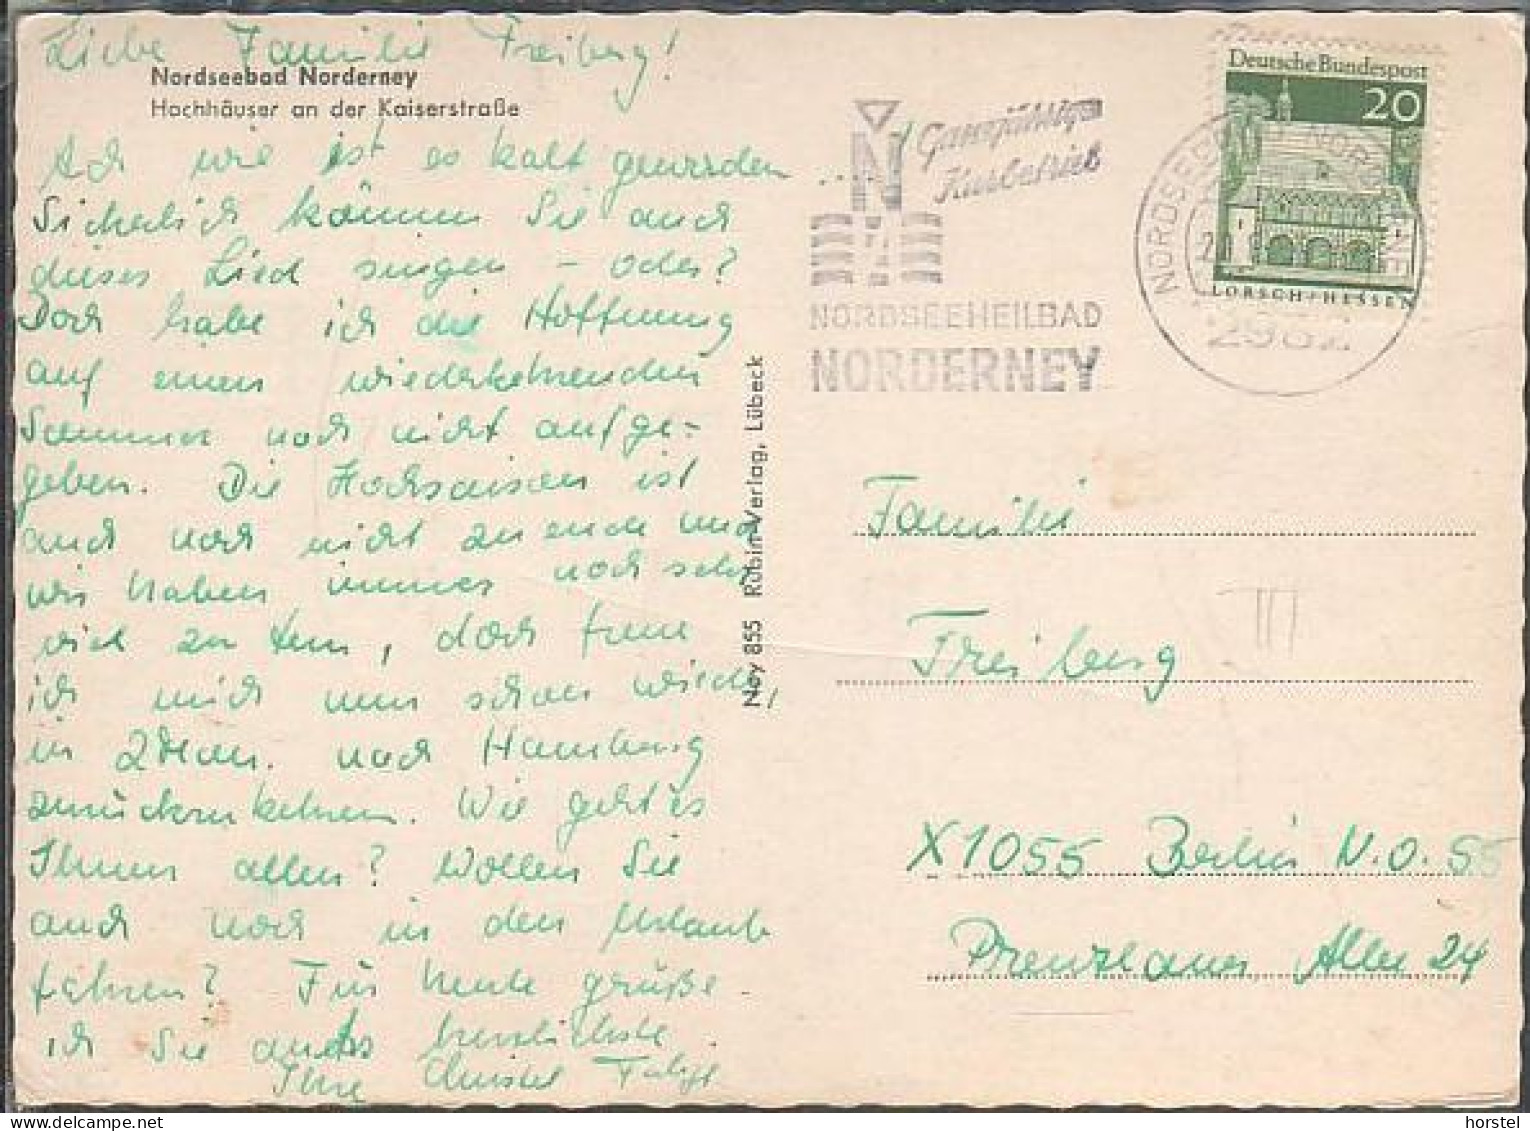 Liebe Familie Freiberg!
Nordseebad Norderney
Hochhäuser an der Kaiserstraße
Ach wie ist es kalt geworden
Sicherlich können Sie auch
dieses Lied singen – oder?
Doch habe ich die Hoffnung
auf einen wiederkehrenden
Sommer noch nicht aufge-
geben. Die Hochsaison ist
auch noch nicht zu ende und
wir haben immer noch sehr
viel zu tun, doch freue
ich mich nun schon wieder,
in 2 Mon. nach Hamburg
zurückzukehren. Wie geht es
Ihnen allen? Wollen Sie
auch noch in den Urlaub
fahren? Für heute grüße
ich Sie alle herzlichst
Ihre Christel
Ney 855 Rubin-Verlag, Lübeck
N
Ganzjährig
Kurbetrieb
NORDSEEHEILBAD
NORDERNEY
Deutsche Bundespost
20
LORSCH/HESSEN
2982
Familie
Freiberg
III
X1055 Berlin N.O. 55
Prenzlauer Allee 24
horstel